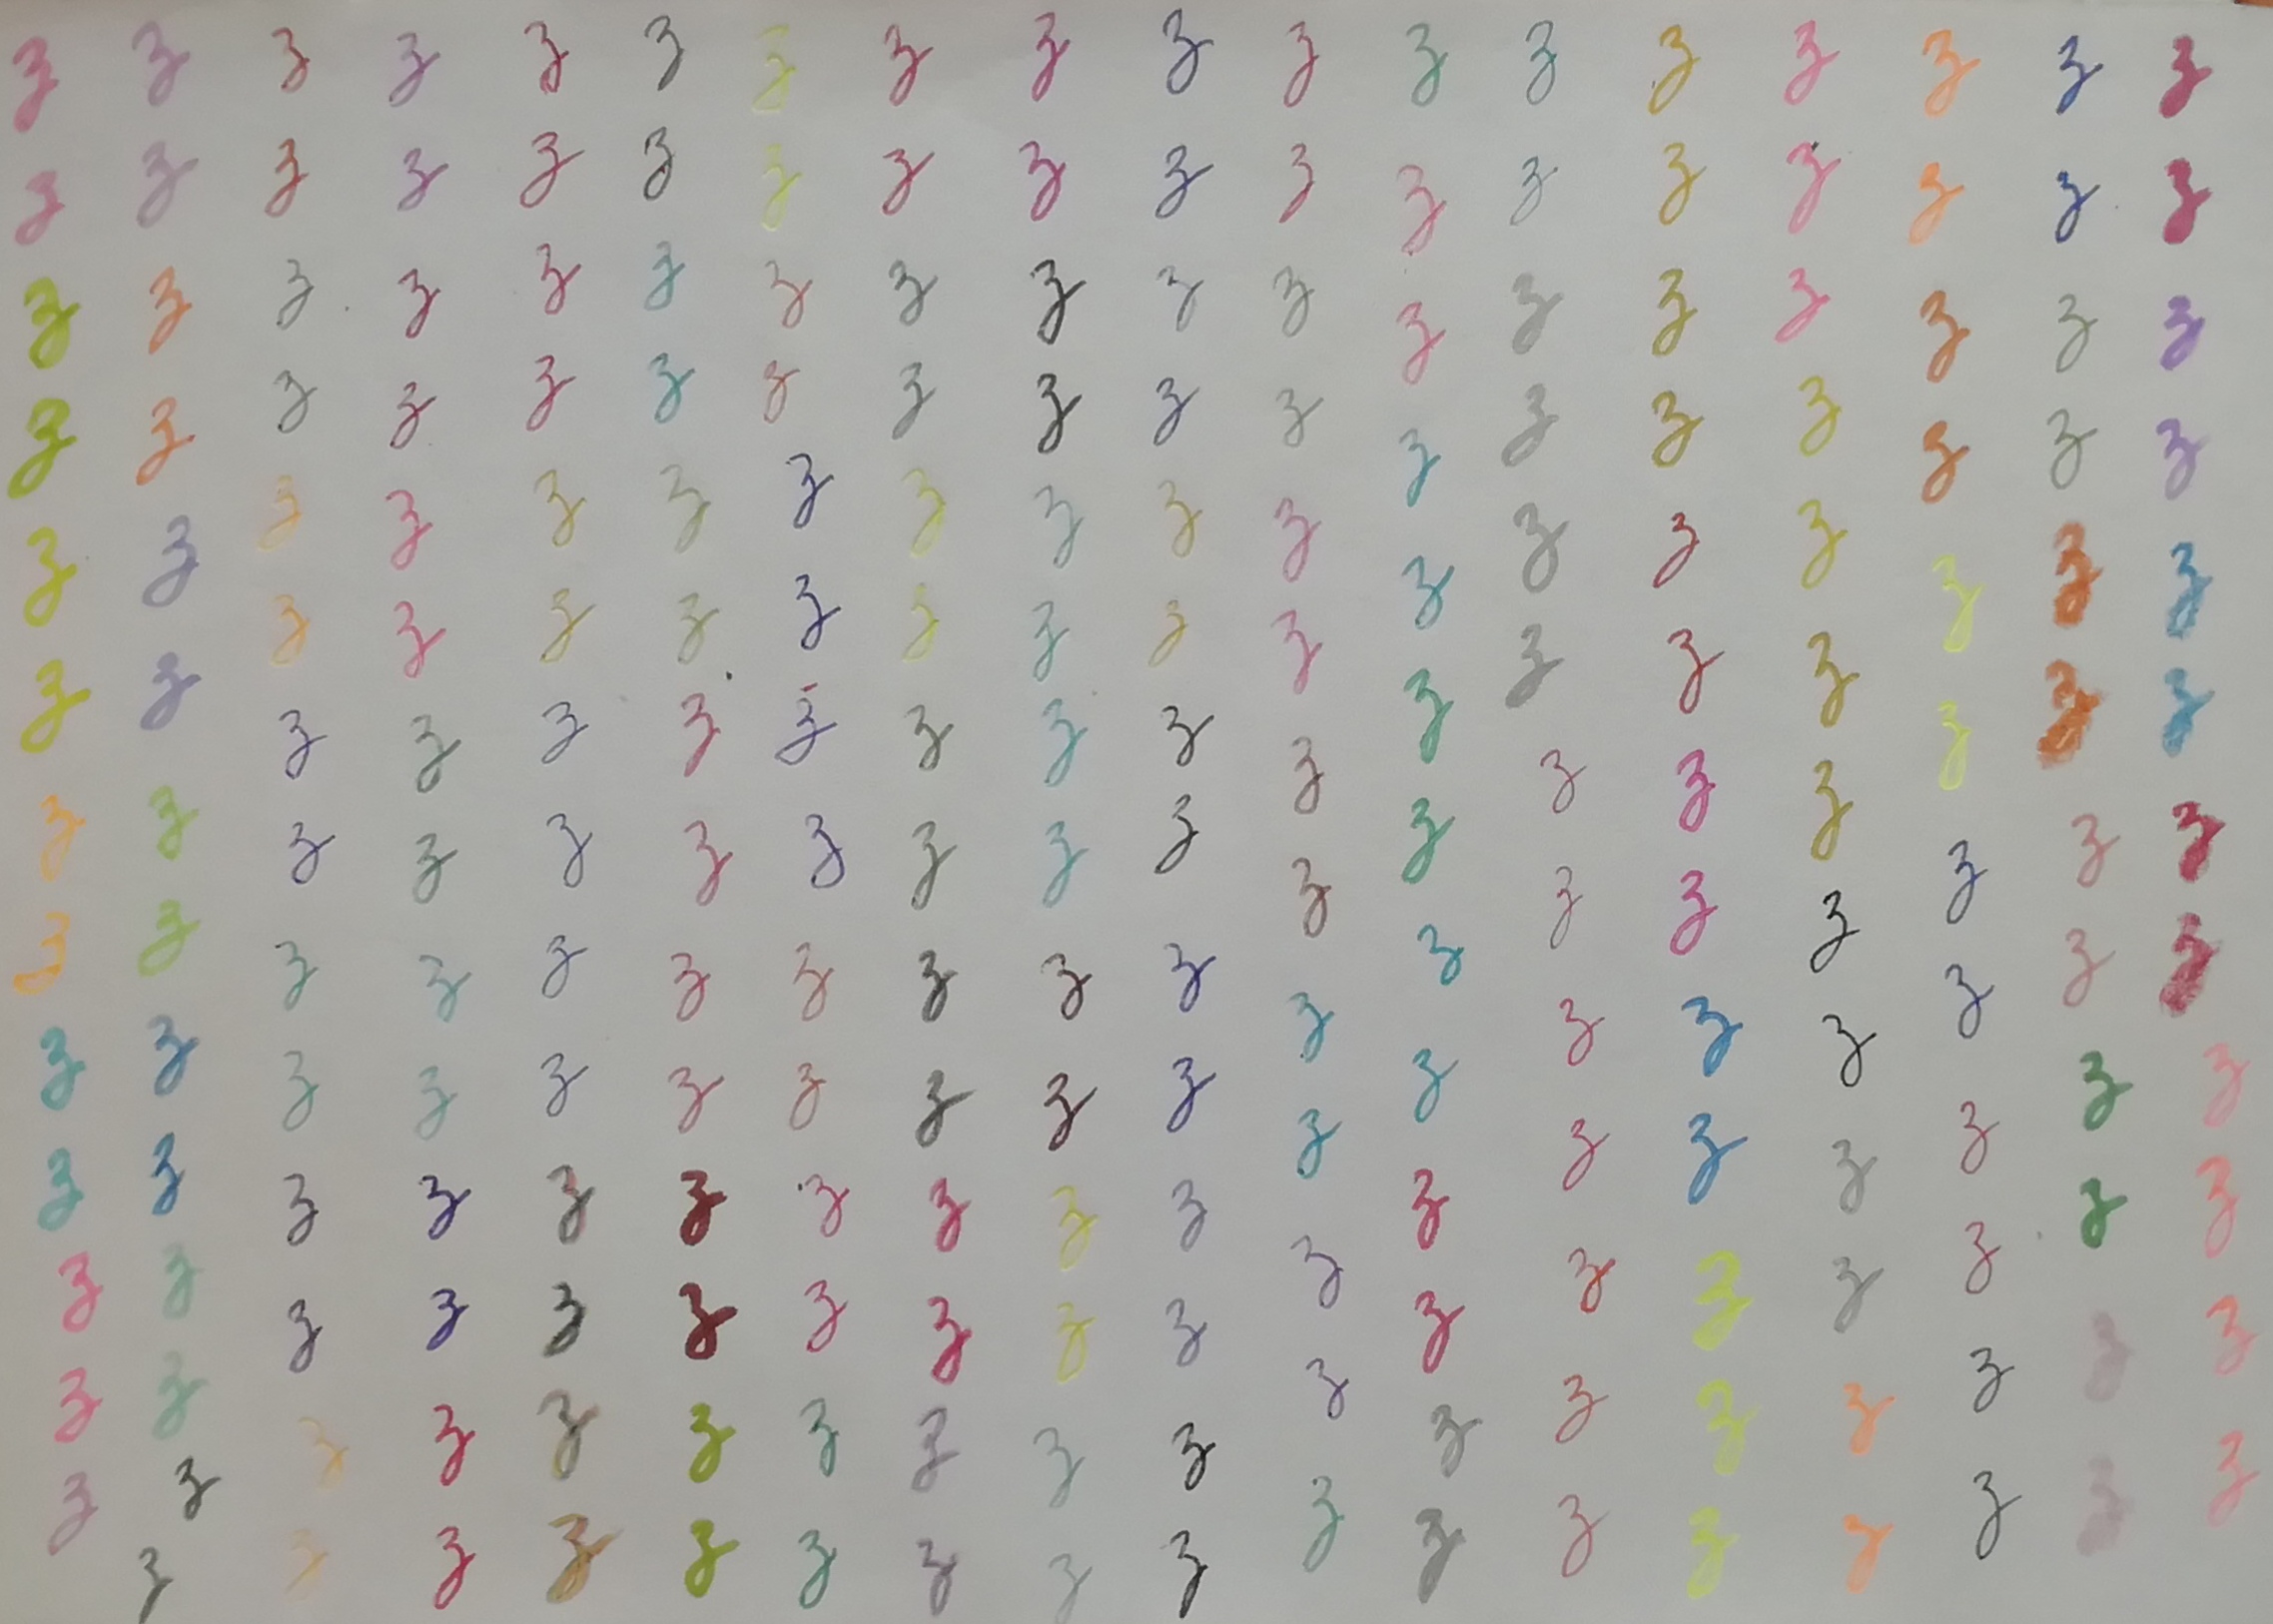 z z z z z z z z z z z z z z z z z z
z z z z z z z z z z z z z z z z z z
z z z z z z z z z z z z z z z z z z
z z z z z z z z z z z z z z z z z z
z z z z z z z z z z z z z z z z z z
z z z z z z z z z z z z z z z z z z
z z z z z z z z z z z z z z z z z z
z z z z z z z z z z z z z z z z z z
z z z z z z z z z z z z z z z z z z
z z z z z z z z z z z z z z z z z z
z z z z z z z z z z z z z z z z z z
z z z z z z z z z z z z z z z z z z
z z z z z z z z z z z z z z z
z z z z z z z z z